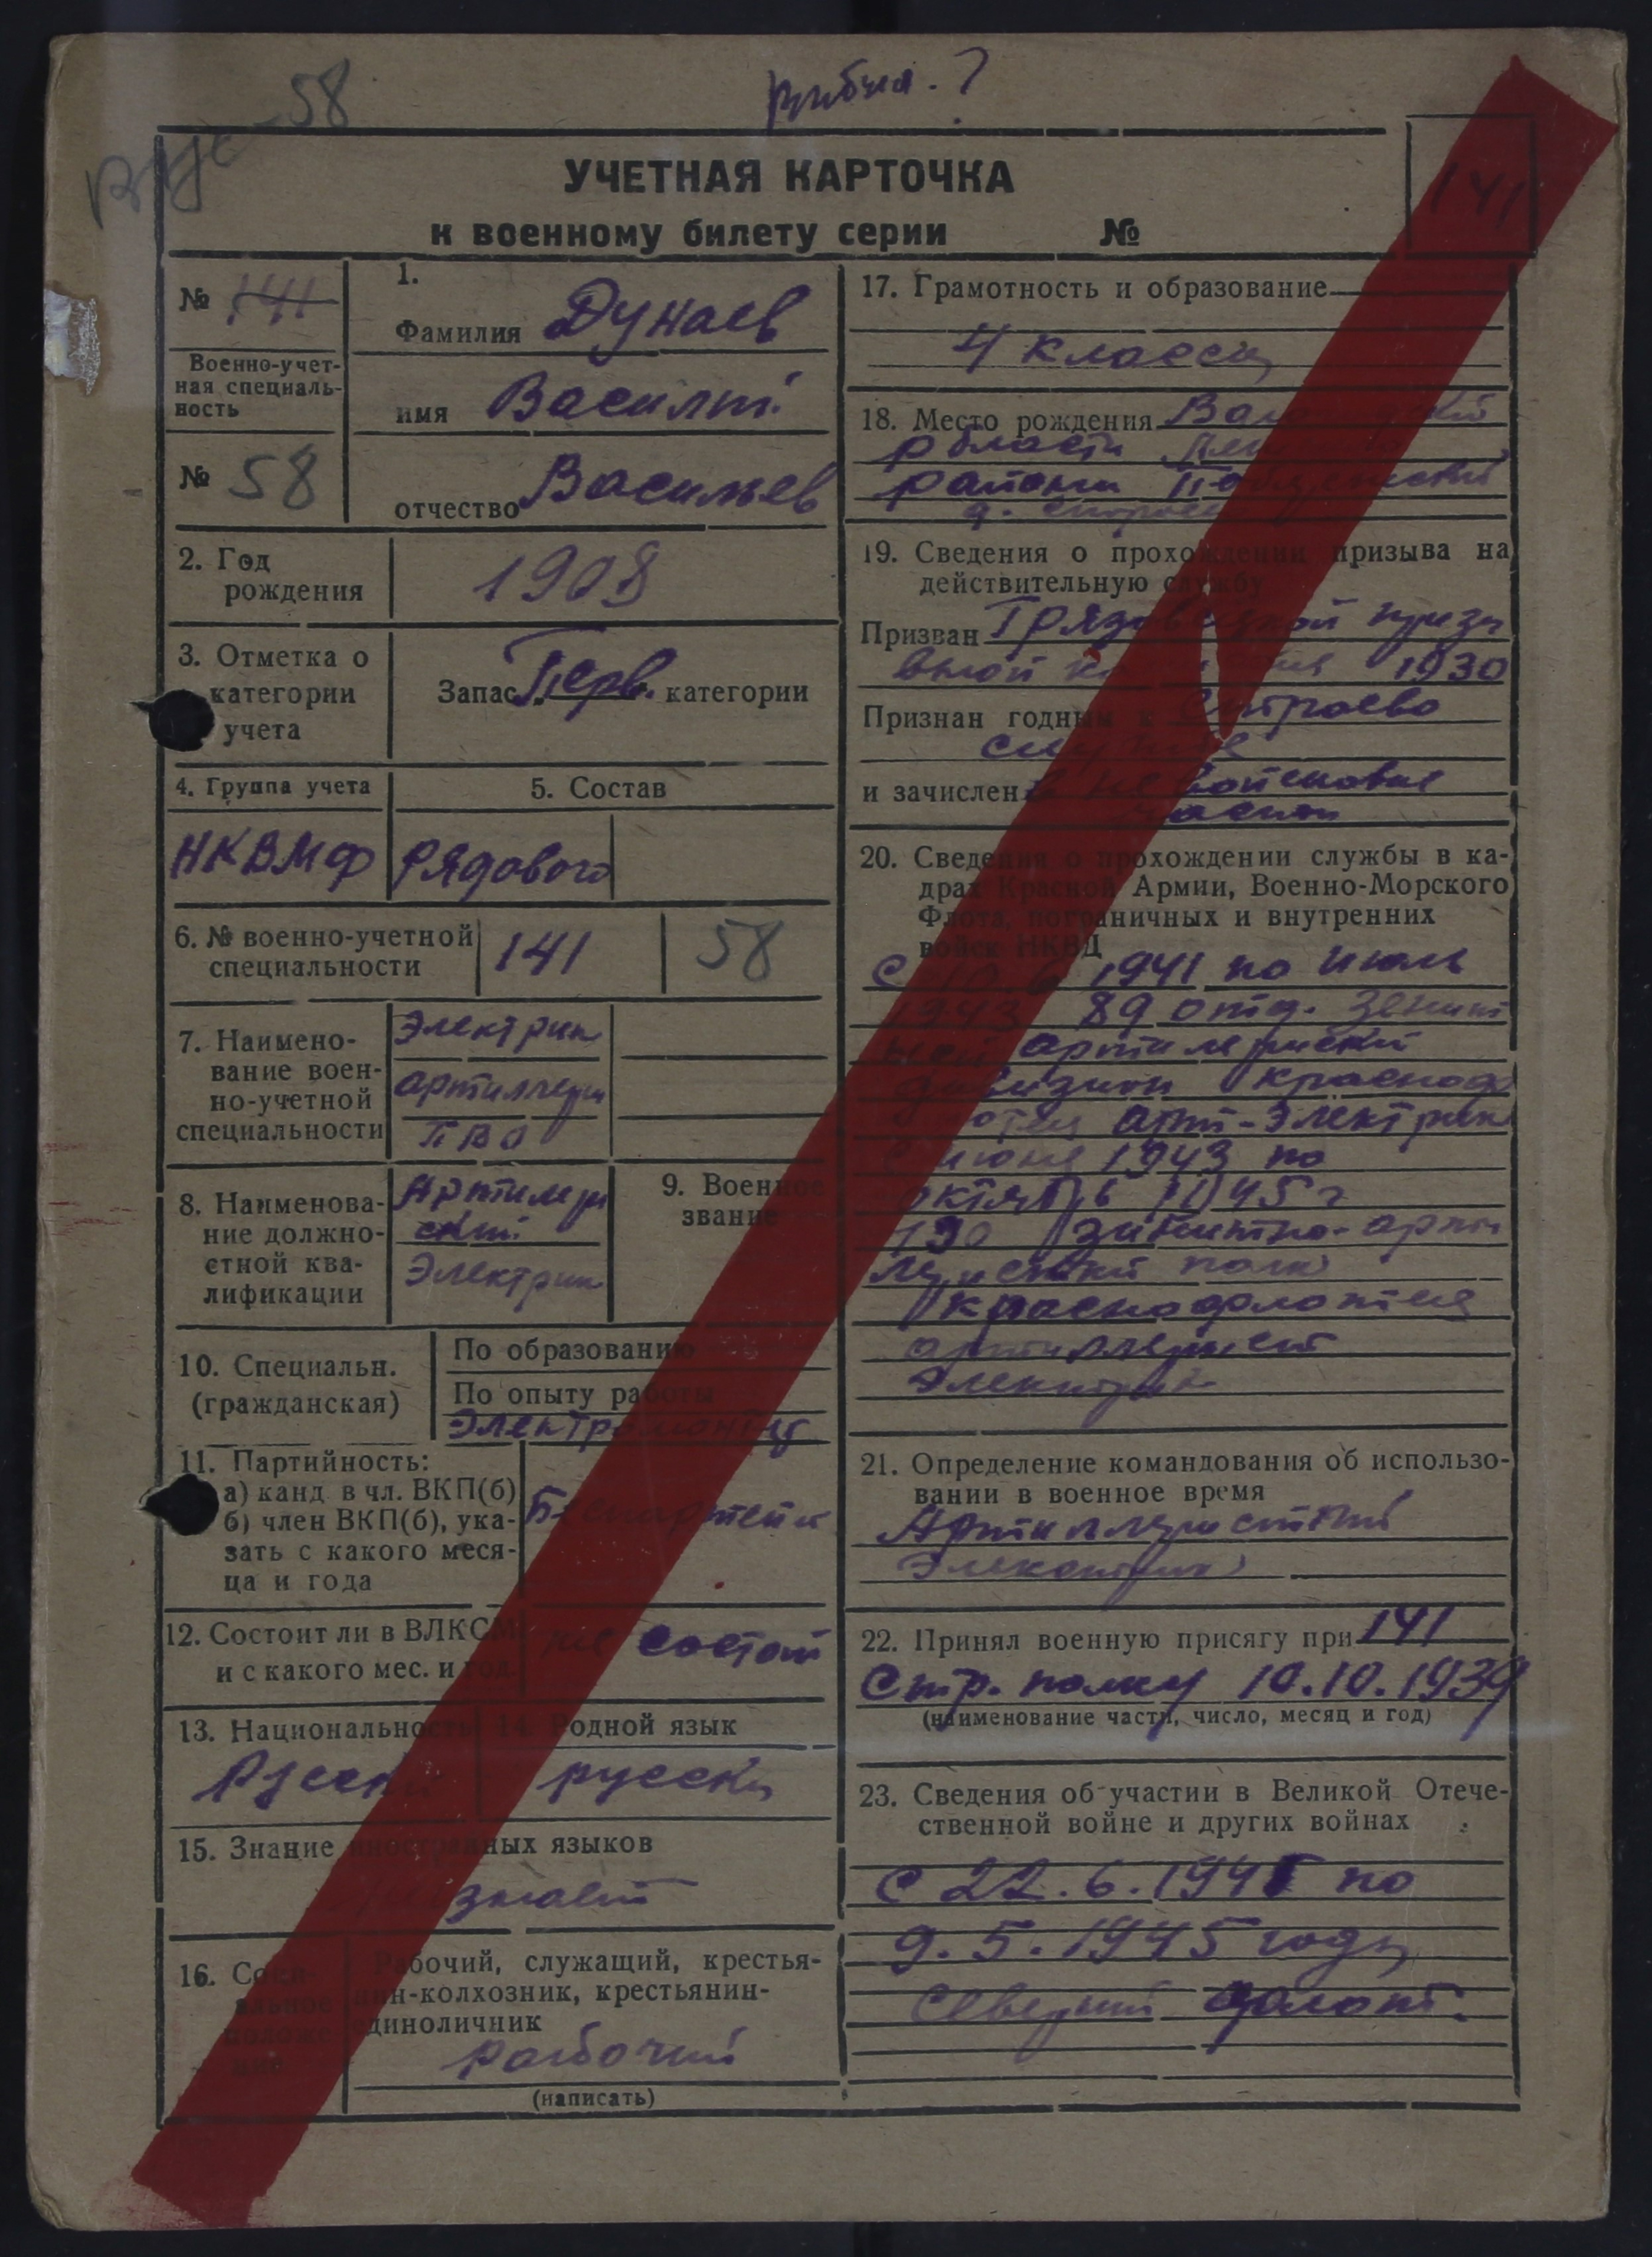 58
УЧЕТНАЯ КАРТОЧКА
к военному билету серии №
141
№ 141
Военно-учет-
ная специаль-
ность
№ 58
1.
Фамилия Дунаев
имя Василий
отчество Васильев
2. Год
рождения
1908
3. Отметка о
категории
учета
Запас „Перв.“ категории
4. Группа учета
5. Состав
НКВМФ
Рядового
6. № военно-учетной
специальности
141
58
7. Наимено-
вание воен-
но-учетной
специальности
Электрик
артиллери
ПВО
8. Наименова-
ние должно-
стной ква-
лификации
Артилери
ский
Электрик
9. Военное
звание
10. Специальн.
(гражданская)
По образованию
По опыту работы
Электромонтер
11. Партийность:
а) канд. в чл. ВКП(б)
б) член ВКП(б), ука-
зать с какого меся-
ца и года
12. Состоит ли в ВЛКСМ
и с какого мес. и год.
не состоит
13. Национальность
Русский
14. Родной язык
русски
15. Знание иностранных языков
незнает
16. Соци-
альное
положе-
ние
Рабочий, служащий, крестья-
нин-колхозник, крестьянин-
единоличник
рабочий
(написать)
17. Грамотность и образование
4 класса
18. Место рождения
области
района
д.
19. Сведения о прохождении призыва на
действительную службу
Призван Грязовецкой призы
вной 1930
Признан годным к Строево
службе
и зачислен в не войсковые
части
20. Сведения о прохождении службы в ка-
драх Красной Армии, Военно-Морского
Флота, пограничных и внутренних
войск НКВД
С 10.6 1941 по июль
1943 89 отд. зенит
ный артилерийский
дивизион краснофл
отец арт-электрик
С июня 1943 по
октябрь 1945 г
190 зинитно-арти
лерийский полк
краснофлотец
артиллерист
Электрик
21. Определение командования об использо-
вании в военное время
Артиллериский
Электрик
22. Принял военную присягу при 141
Стр. полку 10.10.1939
(наименование части, число, месяц и год)
23. Сведения об участии в Великой Отече-
ственной войне и других войнах
С 22.6.1941 по
9.5.1945 года
Северный флот.